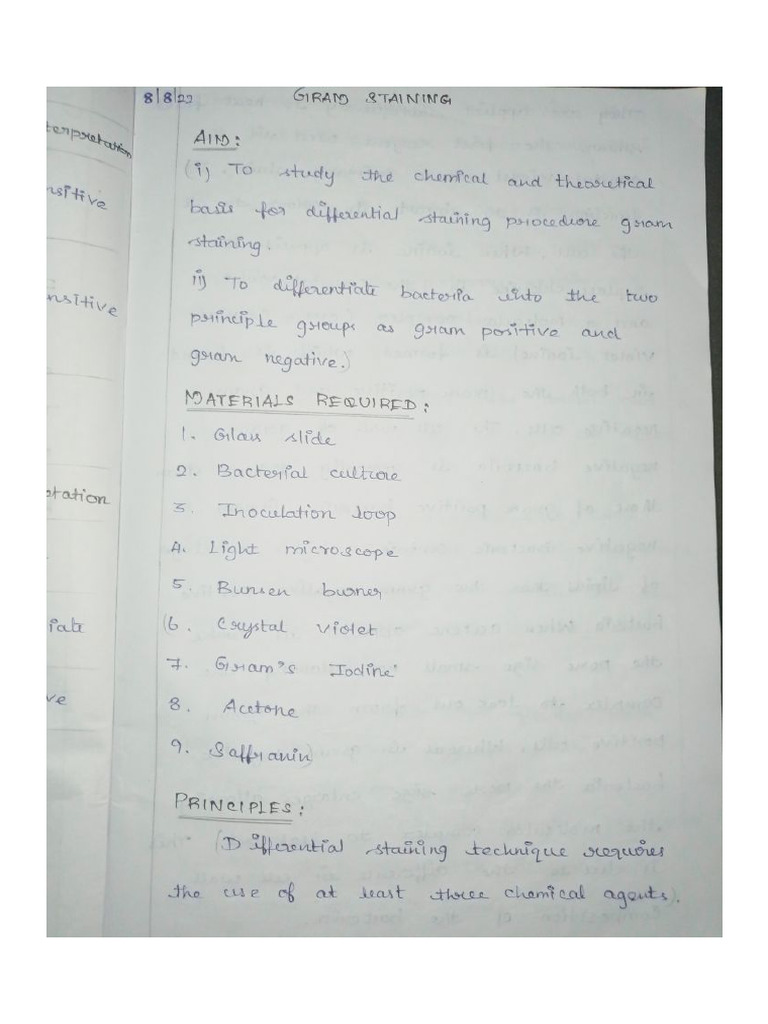 8/8/22 GRAM STAINING
terpretation
nsitive
nsitive
otation
iate
ve
AIM:
(i) To study the chemical and theoretical
basis for differential staining procedure gram
staining.
ii) To differentiate bacteria into the two
principle groups as gram positive and
gram negative.)
MATERIALS REQUIRED:
1. Glass slide
2. Bacterial culture
3. Inoculation loop
4. Light microscope
5. Bunsen burner
(6. Crystal violet
7. Gram's Iodine
8. Acetone
9. Saffranin)
PRINCIPLES:
(Differential staining technique requires
the use of at least three chemical agents).